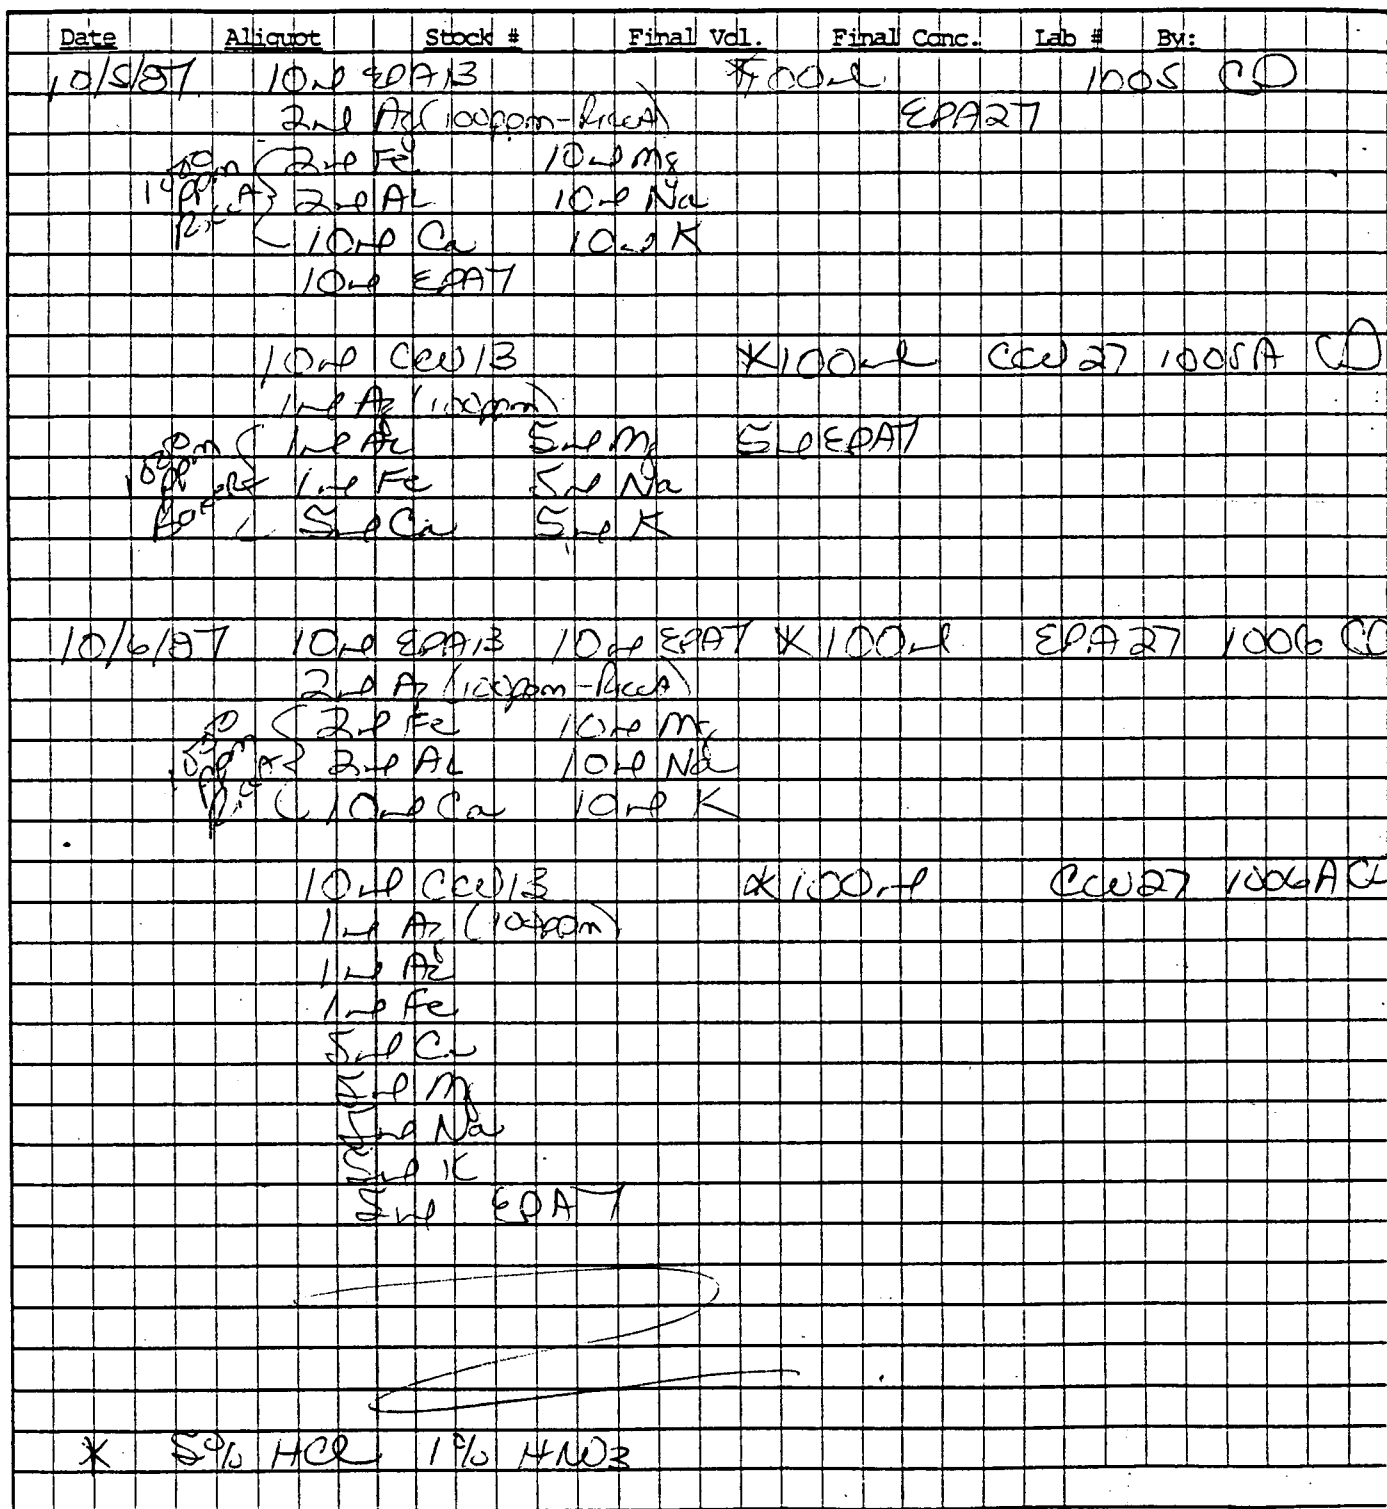 Date Aliquot Stock # Final Vol. Final Conc. Lab # By:
10/5/87 10ml EPA13 *100ml 1005 CD
2ml Ag (100ppm-Ricca) EPA27
1000 ppm Ricca { 2ml Fe 10ml Mg
2ml AL 10ml Na
10ml Ca 10ml K
10ml EPA7
10ml CCV13 *100ml CCV27 1005A CD
1ml Ag (100ppm)
1000 ppm { 1ml AL 5ml Mg 5ml EPA7
1ml Fe 5ml Na
5ml Ca 5ml K
10/6/87 10ml EPA13 10ml EPA7 *100ml EPA27 1006 CD
2ml Ag (100ppm-Ricca)
1000 ppm Ricca { 2ml Fe 10ml Mg
2ml AL 10ml Na
10ml Ca 10ml K
10ml CCV13 *100ml CCV27 1006A CD
1ml Ag (100ppm)
1ml AL
1ml Fe
5ml Ca
5ml Mg
5ml Na
5ml K
5ml EPA7
* 5% HCl 1% HNO3